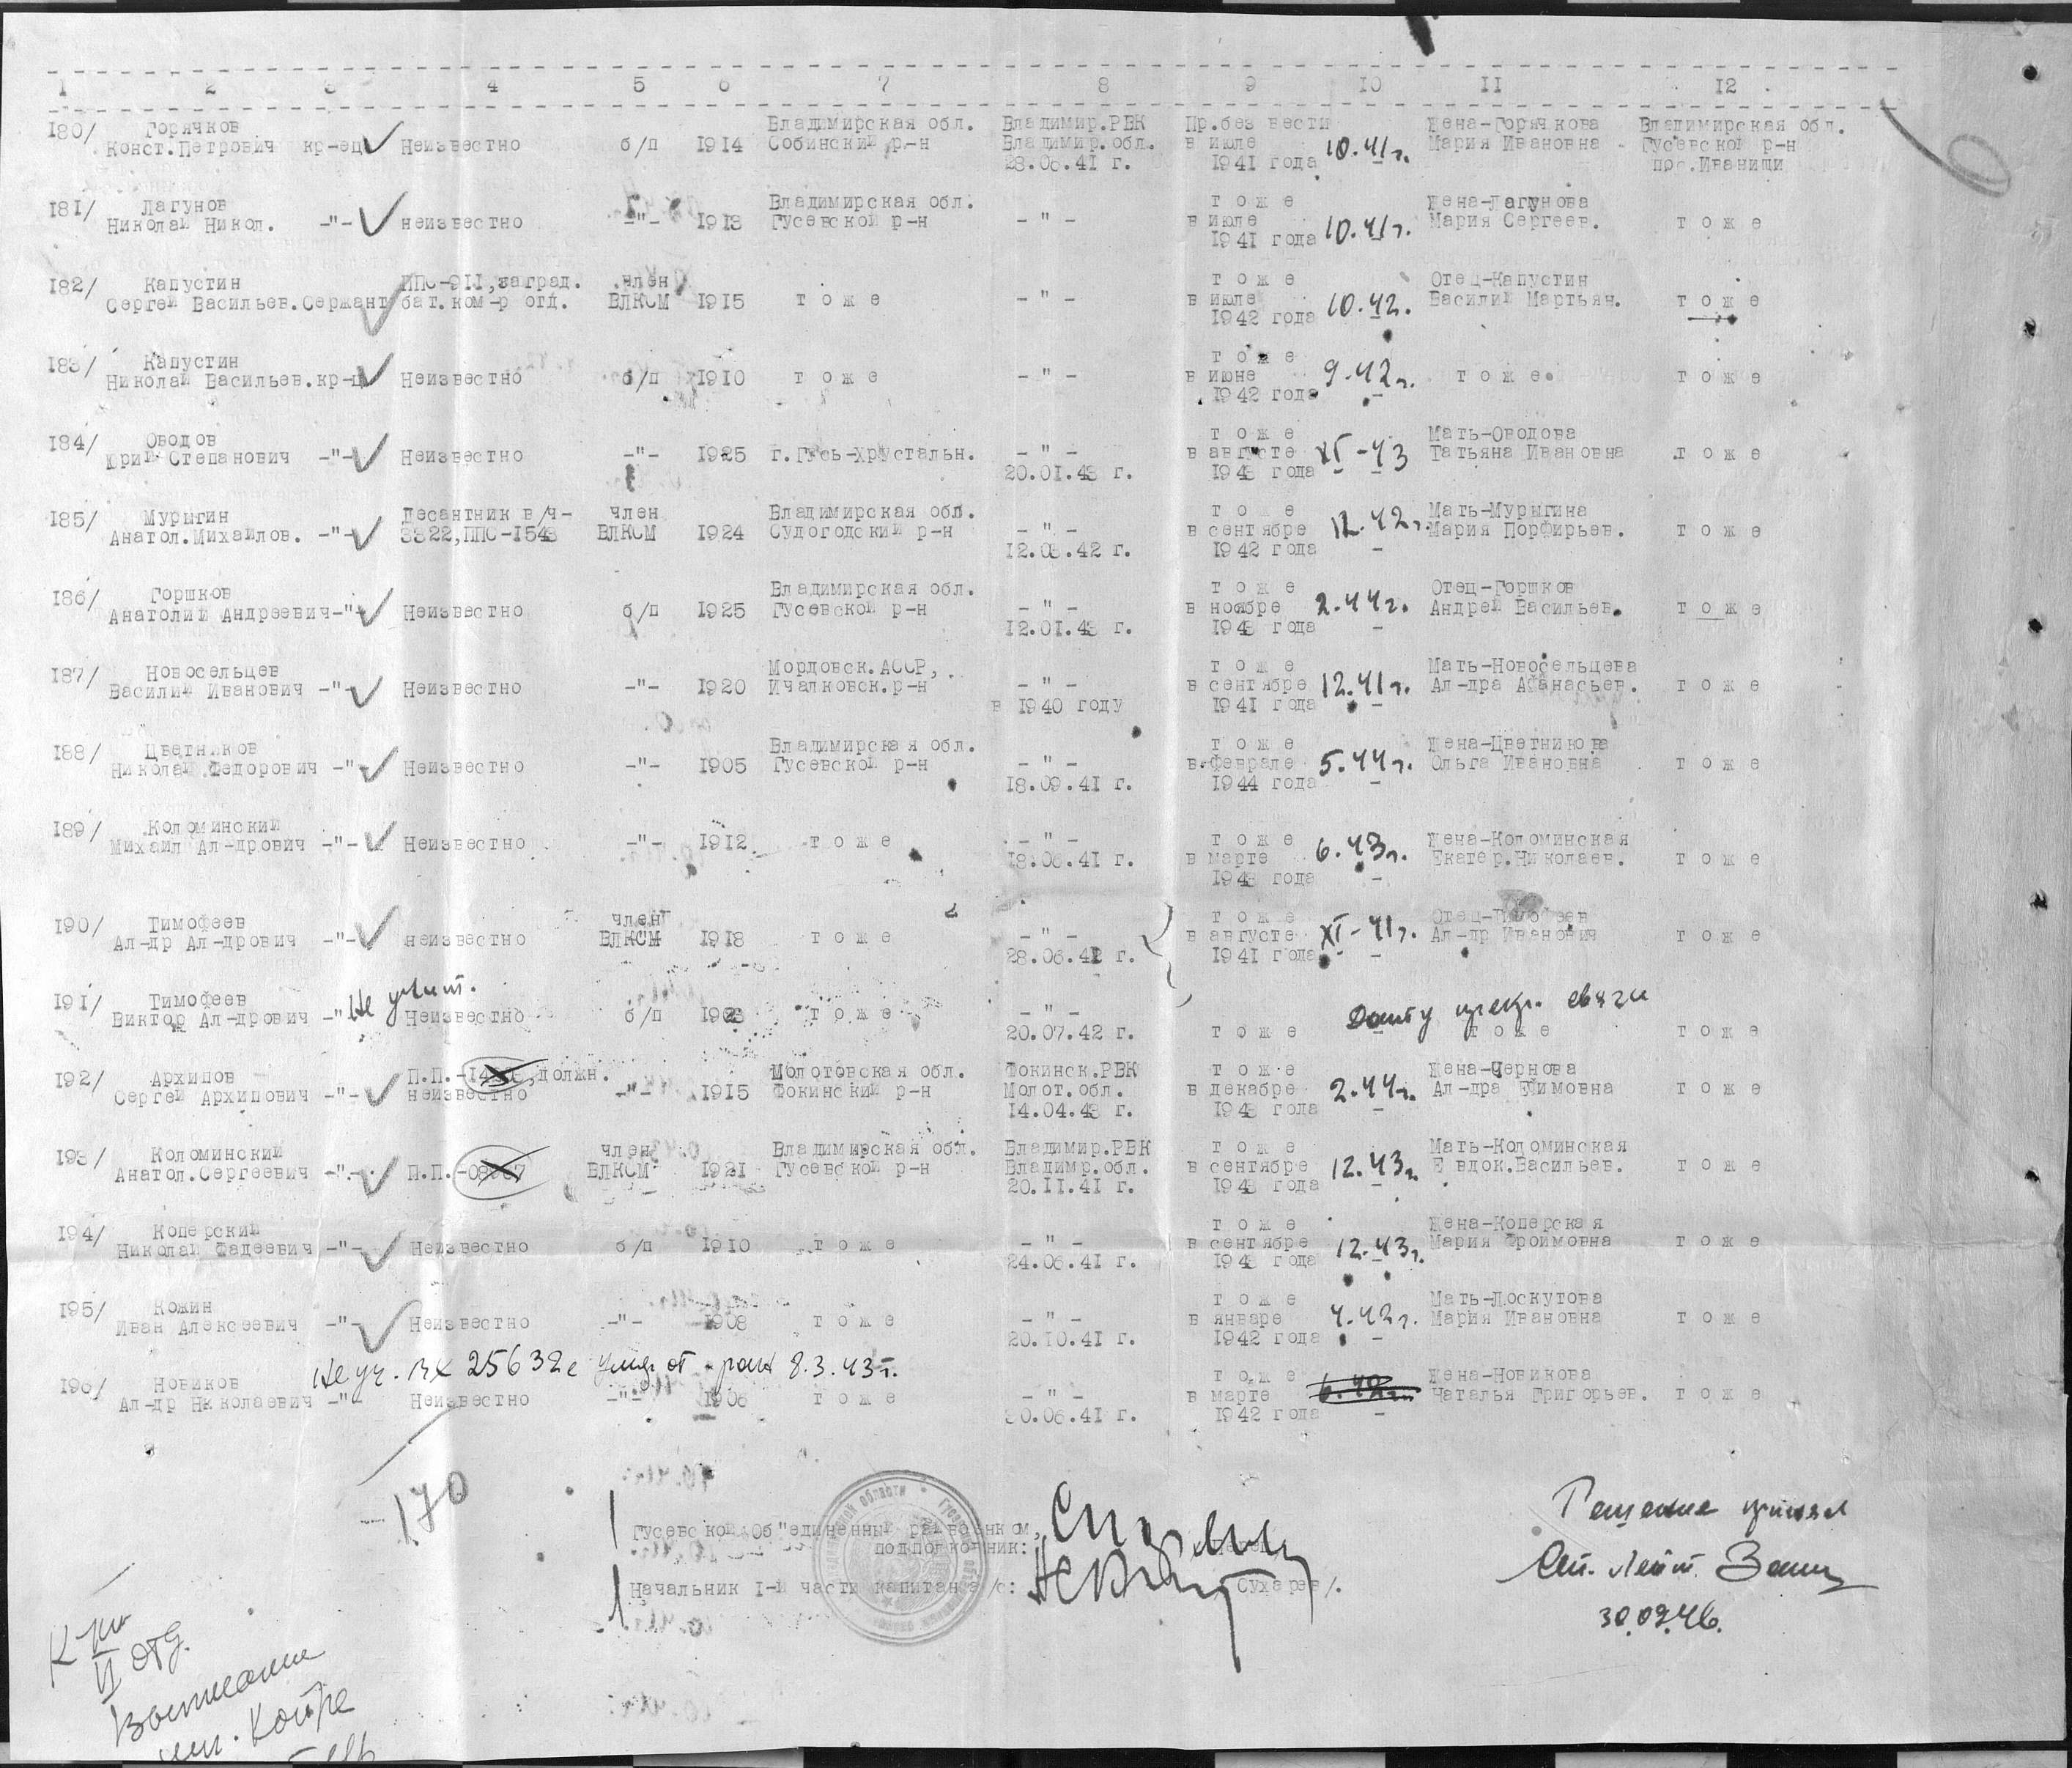 1 2 3 4 5 6 7 8 9 10 11 12
180/ Горячков Владимирская обл. Владимир.РВК Пр.без вести Жена-Горячкова Владимирская обл.
Конст.Петрович кр-ец Неизвестно б/п 1914 Собинский р-н Владимир.обл. в июле 10.41г. Мария Ивановна Гусевской р-н
28.06.41 г. 1941 года пос.Иванищи
181/ Лагунов Владимирская обл. т о ж е Жена-Лагунова
Николай Никол. -"- неизвестно -"- 1913 Гусевской р-н - " - в июле 10.41г. Мария Сергеев. т о ж е
1941 года
182/ Капустин ППС-911,заград. член т о ж е Отец-Капустин
Сергей Васильев.Сержант бат.ком-р отд. ВЛКСМ 1915 т о ж е - " - в июле 10.42. Василий Мартьян. т о ж е
1942 года
183/ Капустин т о ж е
Николай Васильев.кр-ц Неизвестно б/п 1910 т о ж е - " - в июне 9.42г. т о ж е т о ж е
1942 года
184/ Оводов т о ж е Мать-Оводова
Юрий Степанович -"- Неизвестно -"- 1925 г.Гусь-Хрустальн. - " - в августе XI-43 Татьяна Ивановна т о ж е
20.01.43 г. 1943 года
185/ Мурыгин Десантник в/ч- член Владимирская обл. т о ж е Мать-Мурыгина
Анатол.Михайлов. -"- 3322,ППС-1543 ВЛКСМ 1924 Судогодский р-н - " - в сентябре 12.42г. Мария Порфирьев. т о ж е
12.08.42 г. 1942 года -
186/ Горшков Владимирская обл. т о ж е Отец-Горшков
Анатолий Андреевич-"- Неизвестно б/п 1925 Гусевской р-н - " - в ноябре 2.44г. Андрей Васильев. т о ж е
12.01.43 г. 1943 года -
187/ Новосельцев Мордовск.АССР, т о ж е Мать-Новосельцева
Василий Иванович -"- Неизвестно -"- 1920 Ичалковск.р-н - " - в сентябре 12.41г. Ал-дра Афанасьев. т о ж е
в 1940 году 1941 года -
188/ Цветников Владимирская обл. т о ж е Жена-Цветникова
Николай Федорович -"- Неизвестно -"- 1905 Гусевской р-н - " - в феврале 5.44г. Ольга Ивановна т о ж е
18.09.41 г. 1944 года -
189/ Коломинский т о ж е Жена-Коломинская
Михаил Ал-дрович -"- Неизвестно -"- 1912 т о ж е - " - в марте 6.43г. Екатер.Николаев. т о ж е
18.08.41 г. 1943 года -
190/ Тимофеев член т о ж е Отец-Тимофеев
Ал-др Ал-дрович -"- неизвестно ВЛКСМ 1918 т о ж е - " - в августе XI-41г. Ал-др Иванович т о ж е
28.06.41 г. 1941 года -
191/ Тимофеев Не учит. Дату прекр. связи
Виктор Ал-дрович -" Неизвестно б/п т о ж е - " -
20.07.42 г. т о ж е т о ж е т о ж е
192/ Архипов П.П.- ,должн. Молотовская обл. Фокинск.РВК т о ж е Жена-Чернова
Сергей Архипович -"- неизвестно -"- 1915 Фокинский р-н Молот.обл. в декабре 2.44г. Ал-дра Ефимовна т о ж е
14.04.43 г. 1943 года -
193/ Коломинский член Владимирская обл. Владимир.РВК т о ж е Мать-Коломинская
Анатол.Сергеевич -"- П.П.- ВЛКСМ 1921 Гусевской р-н Владимр.обл. в сентябре 12.43г. Евдок.Васильев. т о ж е
20.11.41 г. 1943 года -
194/ Коперский т о ж е Жена-Коперская
Николай Фадеевич -"- Неизвестно б/п 1910 т о ж е - " - в сентябре 12.43г. Мария Фроимовна т о ж е
24.06.41 г. 1943 года
195/ Кожин т о ж е Мать-Лоскутова
Иван Алексеевич -"- Неизвестно -"- 1908 т о ж е - " - в январе 4.42г. Мария Ивановна т о ж е
20.10.41 г. 1942 года -
Не уч. Вх 25632с умер от ран 8.3.43г.
196/ Новиков т о ж е Жена-Новикова
Ал-др Николаевич -"- Неизвестно -"- 1906 т о ж е - " - в марте 6.42г. Наталья Григорьев. т о ж е
30.06.41 г. 1942 года -
-170
Гусевской Об"единенный райвоенком,
подполковник:
Начальник I-й части капитан а/с: Сухарев/.
Решение принял
Ст. Лейт.
30.09.46.